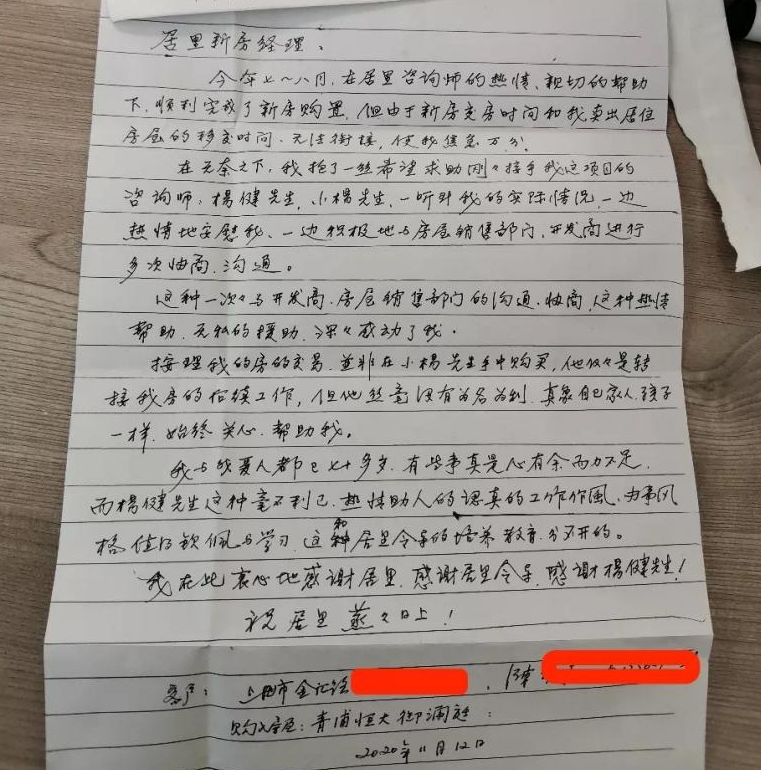 居里新房经理、
今年七~八月，在居里咨询师的热情、親切的帮助
下，顺利完成了新房购置，但由于新房交房时间和我卖出居住
房屋的移交时间，无法衔接，使我焦急万分。
在无奈之下，我抱了一丝希望求助刚々接手我这项目的
咨询师，楊健先生，小楊先生，一听到我的实际情况，一边
热情地安慰我、一边积极地与房屋销售部门，开发商进行
多次协商、沟通。
这种一次々与开发商、房屋銷售部门的沟通、协商，这种热情
帮助，无私的援助，深々感动了我。
按理我的房的交易，並非在小楊先生手中购买，他仅々是转
接我房的后续工作，但他丝毫没有为名为利，真象自己家人，孩子
一样，始终关心，帮助我。
我与我夏人都已七十多岁，有些事真是心有余而力不足，
而楊健先生这种毫不利己，热情助人的认真的工作作風，为事风
格值得钦佩与学习，这和居里令导的培养教育分不开的。
我在此衷心地感谢居里，感谢居里令导，感谢楊健先生！
祝居里蒸々日上！
客户：上海市金汇路 、陳
购入房屋：青浦恒大御澜庭：
2020年11月12日